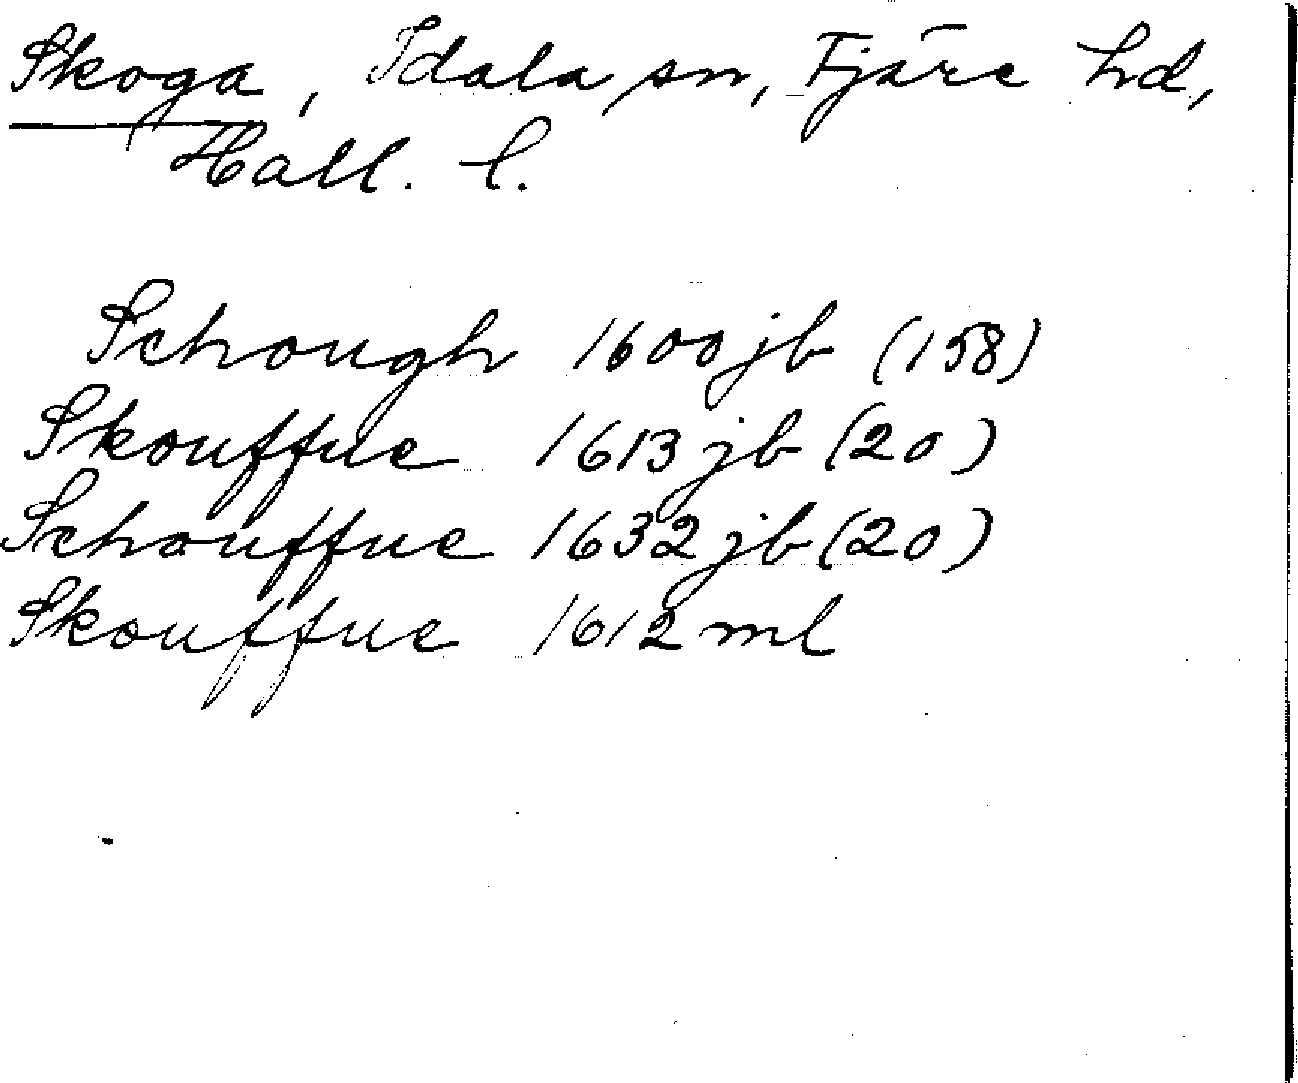 Skoga, Idala sn, Fjäre hd,
Hall. l.
Schough 1600 jb (158)
Skouffue 1613 jb (20)
Schouffue 1632 jb (20)
Skouffue 1612 ml